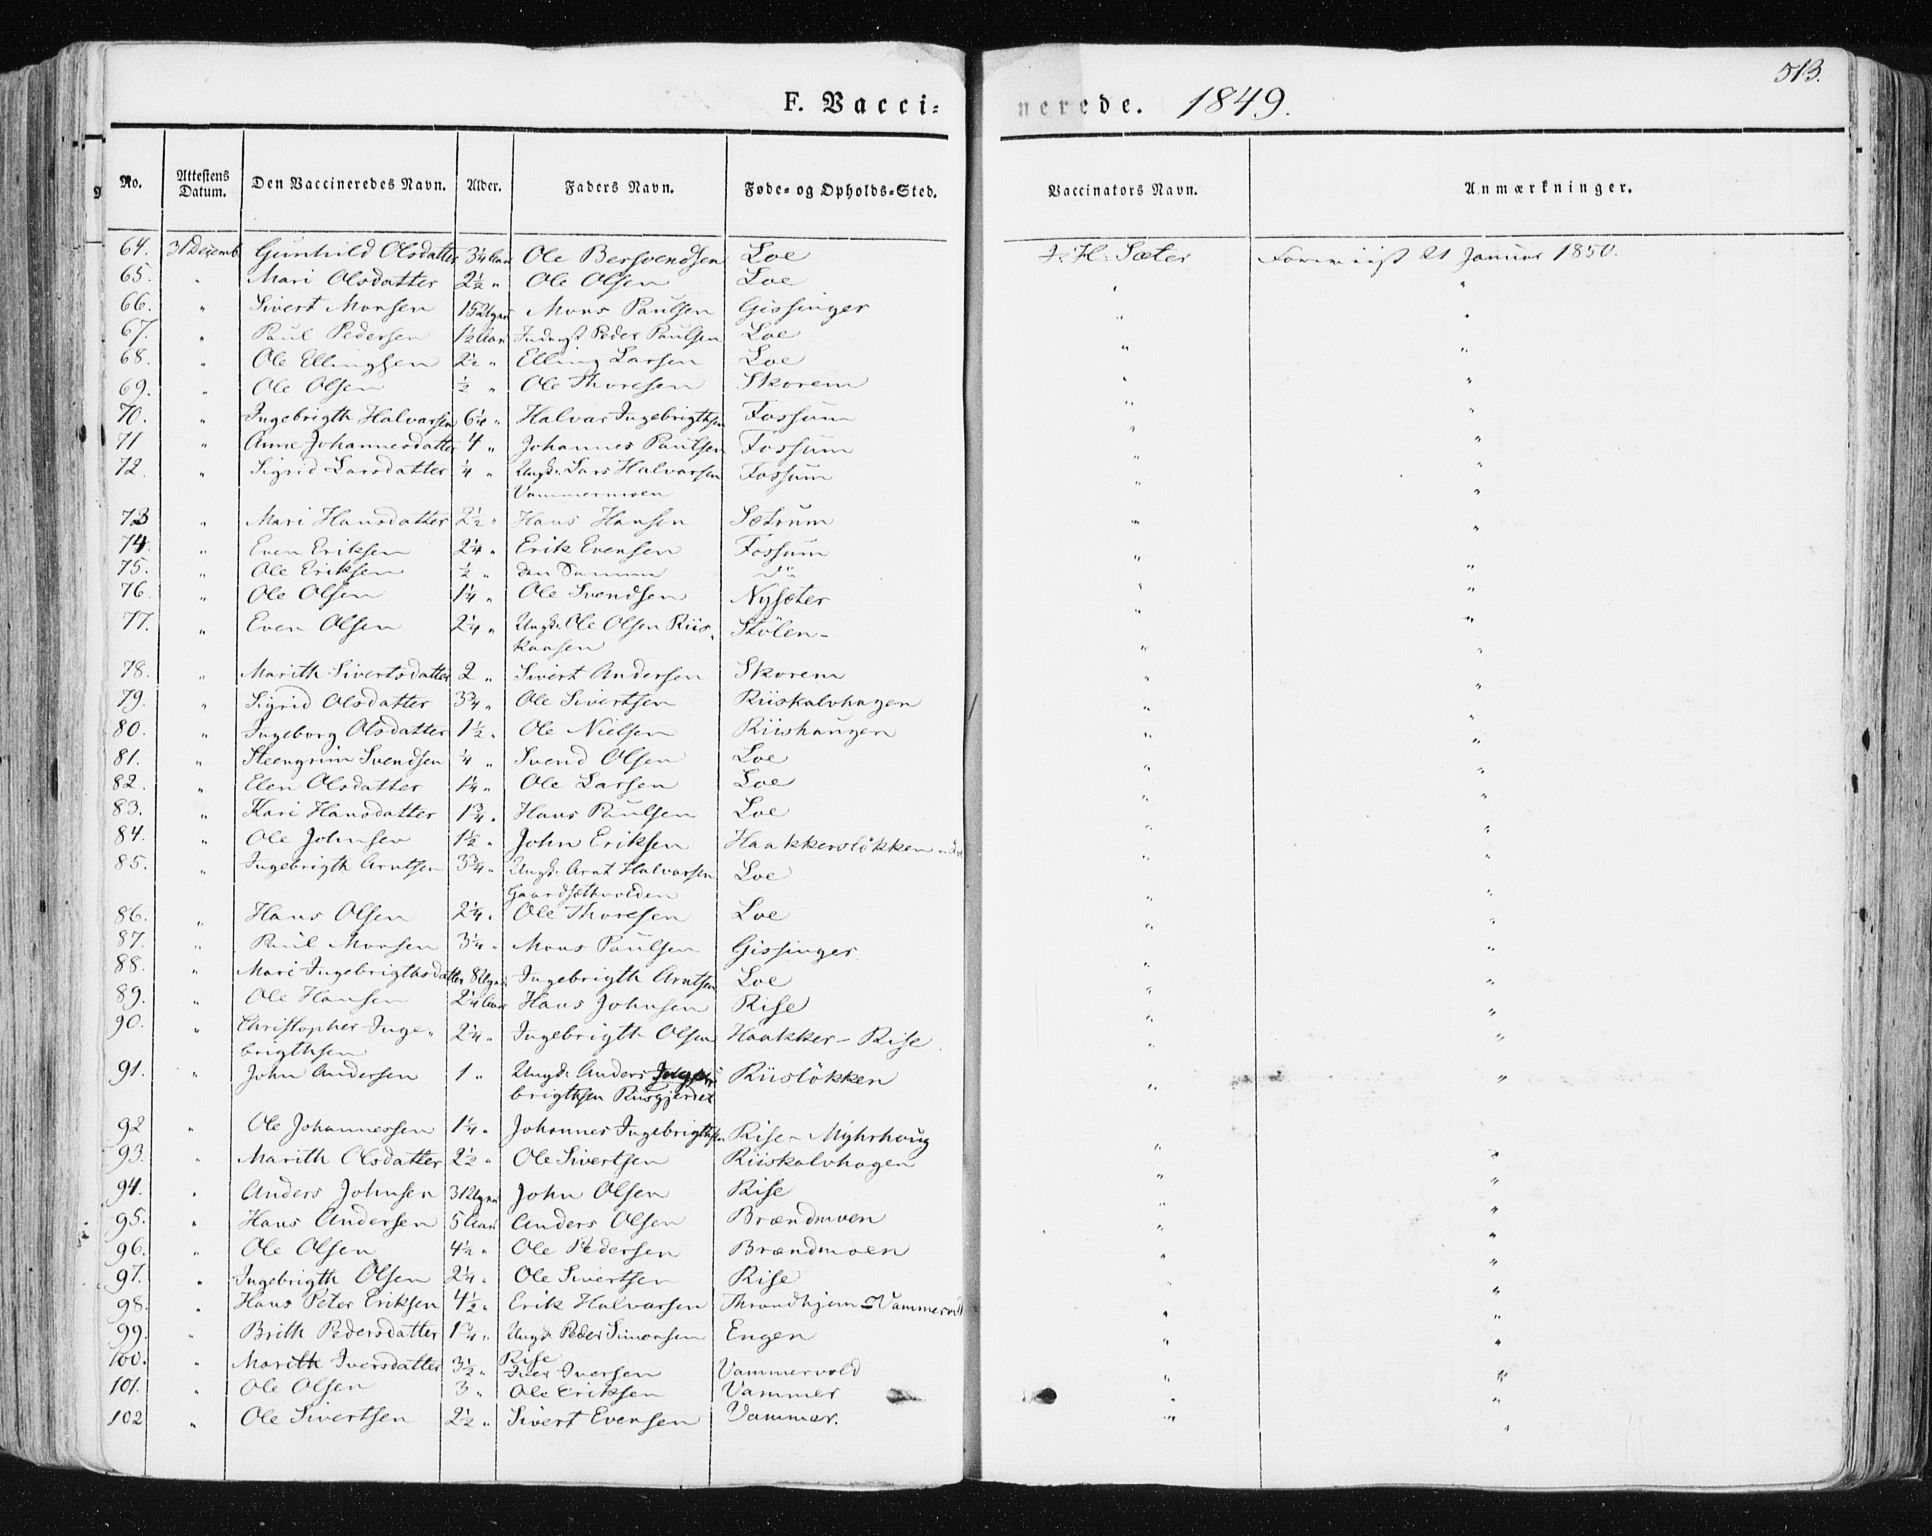 513.
F. Vacci=
nerede. 1849.
No. Attestens Datum. Den Vaccineredes Navn. Alder. Faders Navn. Føde- og Opholds-Sted. Vaccinators Navn. Anmærkninger.
64. 31 Decemb. Gunhild Olsdatter 3¼ Aar Ole Bersvendsen Loe H. Sæter 21 Januar 1850.
65. " Mari Olsdatter 2½ " Ole Olsen Loe " "
66. " Sivert Monsen 15 Uger Mons Paulsen Gissinger " "
67. " Paul Pedersen 1½ Aar Peder Paulsen Loe " "
68. " Ole Ellingsen " Elling Larsen Loe " "
69. " Ole Olsen ½ " Ole Thoresen Skorem " "
70. " Ingebrigth Halvarsen 6¼ " Halvar Ingebrigthsen Fossum " "
71 " Anne Johannesdatter 4 " Johannes Paulsen Fossum " "
72. " Sigrid Larsdatter ¼ " Ungk. Lars Halvarsen Fossum " "
Vammermoen
73 " Mari Hansdatter 2½ " Hans Hansen Sætrum " "
74. " Even Eriksen 2¼ " Erik Evensen Fossum " "
75. " Ole Eriksen ½ " den Samme " "
76. " Ole Olsen 1¼ " Ole Svendsen Nysæter " "
77. " Even Olsen 2¼ " Ungk. Ole Olsen Riis- Stölen- " "
78. " Marith Sivertsdatter 2 " Sivert Andersen Skorem " "
79. " Sigrid Olsdatter 3¾ " Ole Sivertsen Riiskalvhagen " "
80. " Ingeborg Olsdatter 1½ " Ole Nielsen Riishaugen " "
81. " Steengrim Svendsen ¼ " Svend Olsen Loe " "
82. " Elen Olsdatter 1¼ " Ole Larsen Loe " "
83. " Kari Hansdatter 1¾ " Hans Paulsen Loe " "
84. " Ole Johnsen 1½ " John Eriksen Haakkerslökken " "
85. " Ingebrigth Arntsen 3¾ " Ungk. Arnt Halvarsen Loe " "
86. " Hans Olsen 2¼ " Ole Thoresen Loe " "
87. " Paul Monsen 3¼ " Mons Paulsen Gissinger. " "
88. " Mari Ingebrigthsdatter 8 Uger Ingebrigth Arntsen Loe " "
89. " Ole Hansen 2¼ Aar Hans Johnsen Rise " "
90. " Christopher Inge- 2¼ " Ingebrigth Olsen Haakker - Rise " "
brigthsen
91. " John Andersen 1 " Ungk. Anders Riislökken " "
brigthsen Riisgjerdet
92 " Ole Johannessen 1¼ " Johannes Ingebrigthsen Rise - Myhrhoug " "
93. " Marith Olsdatter 2½ " Ole Sivertsen Riiskalvhagen " "
94. " Anders Johnsen Uger John Olsen Rise " "
95. " Hans Andersen 5 Aar Anders Olsen Brændmoen " "
96. " Ole Olsen 4½ " Ole Pedersen Brændmoen " "
97. " Ingebrigth Olsen 2¼ " Ole Sivertsen Rise " "
98. " Hans Peter Eriksen 4½ " Erik Halvarsen Throndhjem - Vammervold " "
99. " Brith Pedersdatter 1¾ " Ungk. Peder Simonsen Engen " "
Rise
100. " Marith Iversdatter 3½ " Iver Iversen Vammervold " "
101. " Ole Olsen 3 " Ole Eriksen Vammer " "
102 " Ole Sivertsen 2½ " Sivert Evensen Vammer. " "